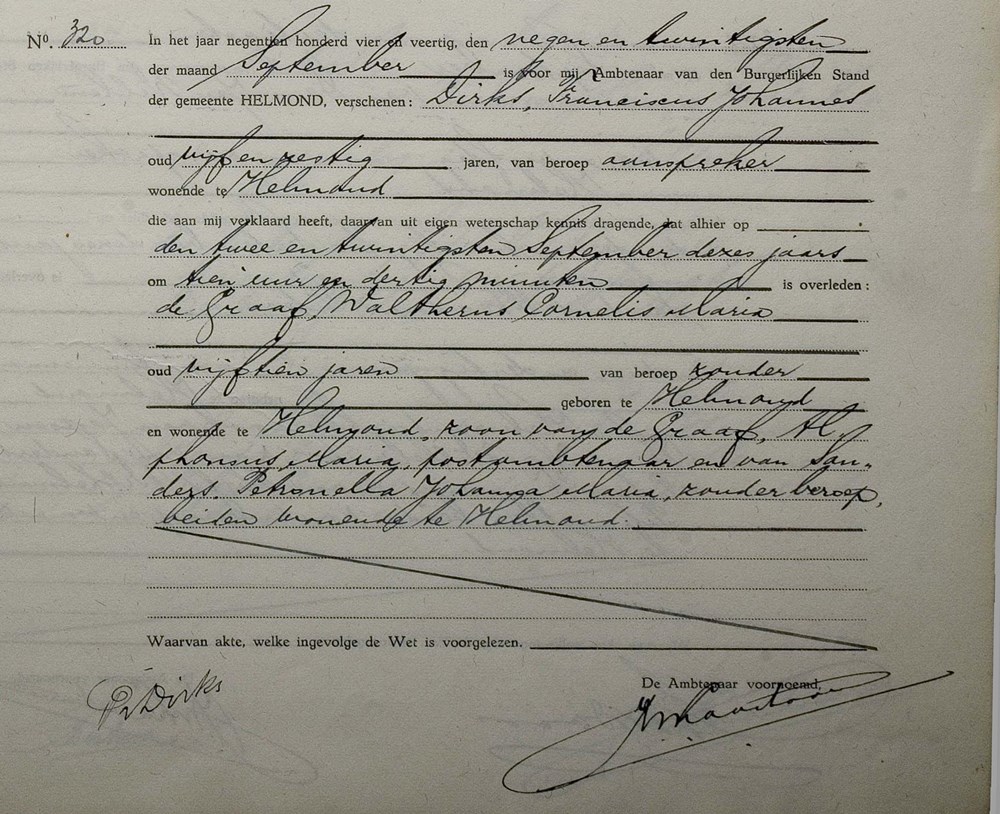 No. 320 In het jaar negentien honderd vier en veertig, den negen en twintigsten
der maand September is voor mij Ambtenaar van den Burgerlijken Stand
der gemeente HELMOND, verschenen: Dirks, Franciscus Johannes
oud vijf en zestig jaren, van beroep aanspreker
wonende te Helmond
die aan mij verklaard heeft, daarvan uit eigen wetenschap kennis dragende, dat alhier op
den twee en twintigsten September dezes jaars
om tien uur en dertig minuten is overleden:
de Graaf, Waltherus Cornelis Maria
oud vijftien jaren van beroep zonder
geboren te Helmond
en wonende te Helmond, zoon van de Graaf, Al-
phonsus Maria, postambtenaar en van San-
ders, Petronella Johanna Maria, zonder beroep,
beiden wonende te Helmond.
Waarvan akte, welke ingevolge de Wet is voorgelezen.
De Ambtenaar voornoemd,
Dirks